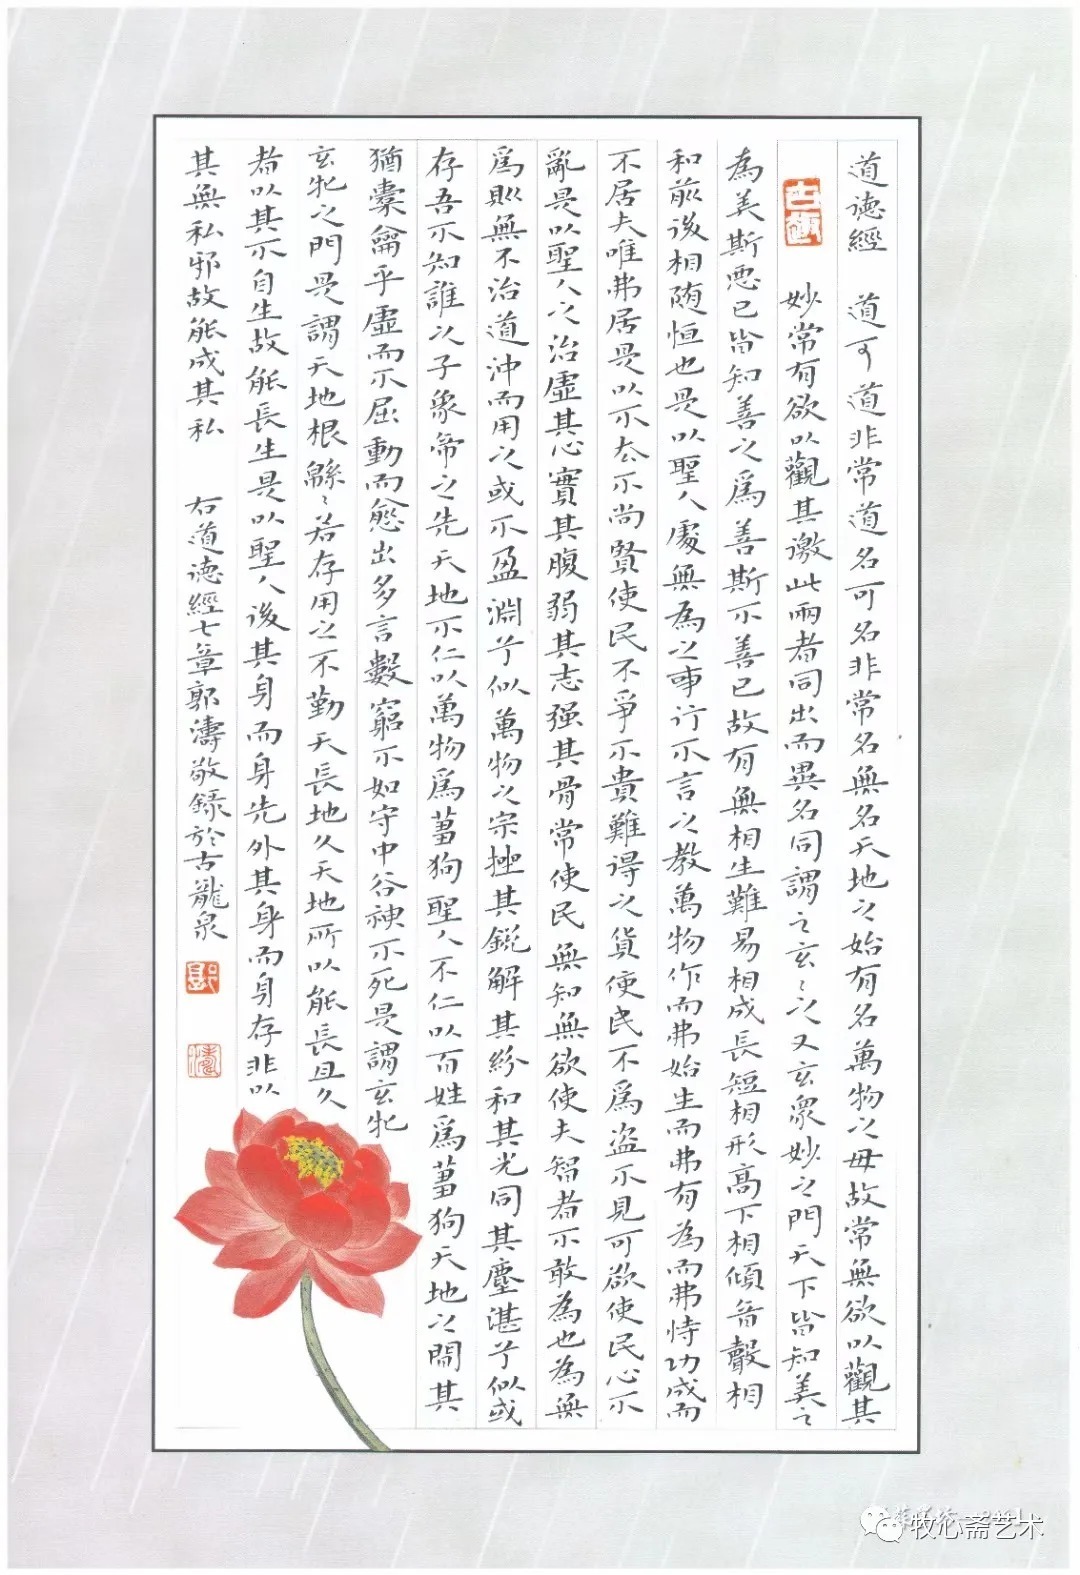 道德經 道可道非常道名可名非常名無名天地之始有名萬物之母故常無欲以觀其
古趣
妙常有欲以觀其邀此兩者同出而異名同謂之玄〻之又玄衆妙之門天下皆知美之
為美斯惡已皆知善之爲善斯不善已故有無相生難易相成長短相形高下相傾音聲相
和前後相随恒也是以聖人處無為之事行不言之教萬物作而弗始生而弗有為而弗恃功成而
不居夫唯弗居是以不去不尚賢使民不爭不貴難得之貨使民不爲盗不見可欲使民心不
亂是以聖人之治虛其心實其腹弱其志强其骨常使民無知無欲使夫智者不敢為也為無
爲則無不治道沖而用之或不盈淵兮似萬物之宗挫其鋭解其紛和其光同其塵湛兮似或
存吾不知誰之子象帝之先天地不仁以萬物爲蒭狗聖人不仁以百姓爲蒭狗天地之間其
猶橐籥乎虛而不屈動而愈出多言數窮不如守中谷神不死是謂玄牝
玄牝之門是謂天地根緜〻若存用之不勤天長地久天地所以能長且久
者以其不自生故能長生是以聖人後其身而身先外其身而身存非以
其無私邪故能成其私 右道德經七章郭濤敬録於古龍泉
郭
濤
牧心斋艺术